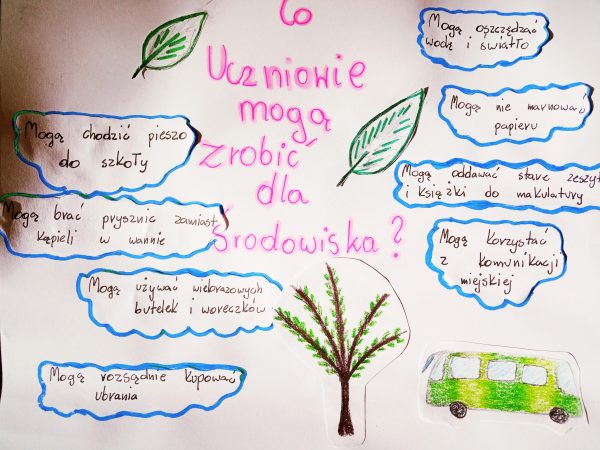 Co
Uczniowie
mogą
zrobić
dla
środowiska?
Mogą chodzić pieszo
do szkoły
Mogą brać prysznic zamiast
kąpieli w wannie
Mogą używać wielorazowych
butelek i woreczków
Mogą rozsądnie kupować
ubrania
Mogą oszczędzać
wodę i światło
Mogą nie marnować
papieru
Mogą oddawać stare zeszyty
i książki do makulatury
Mogą korzystać
z komunikacji
miejskiej